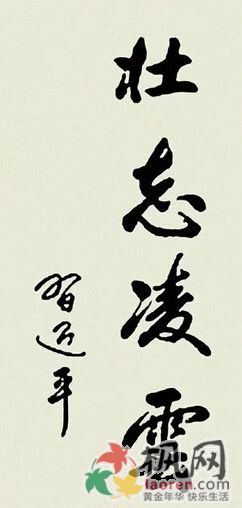 壮志凌雲
習近平
枫网
laoren.com
黄金年华 快乐生活